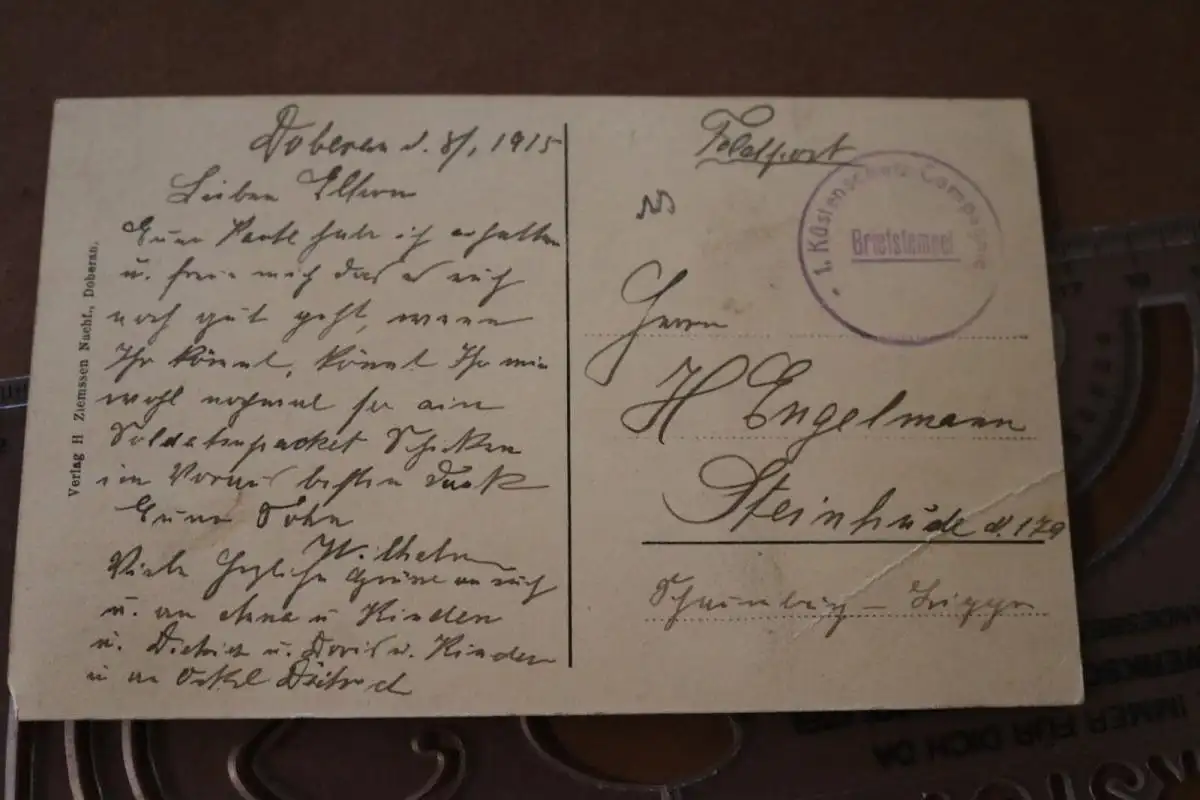 Doberan d. 8/, 1915
Lieben Eltern
Eure Karte habe ich erhalten
u. freue mich das es euch
noch gut geht, wenn
Ihr könnt, könnt Ihr mir
wohl nochmal so ein
Soldatenpacket Schicken
im Voraus besten Dank
Euer Sohn
Wilhelm
Viele herzliche Grüße an euch
u. an u Kinder
u. Dietrich u. Doris u. Kinder
u an Onkel Dietrich
Verlag H Ziemssen Nachf., Doberan.
Feldpost
1. Küstenschutz Compagnie
Briefstempel
Herrn
H Engelmann
Steinhude N. 179
Schaumburg – Lippe
IMMER FÜR DICH DA